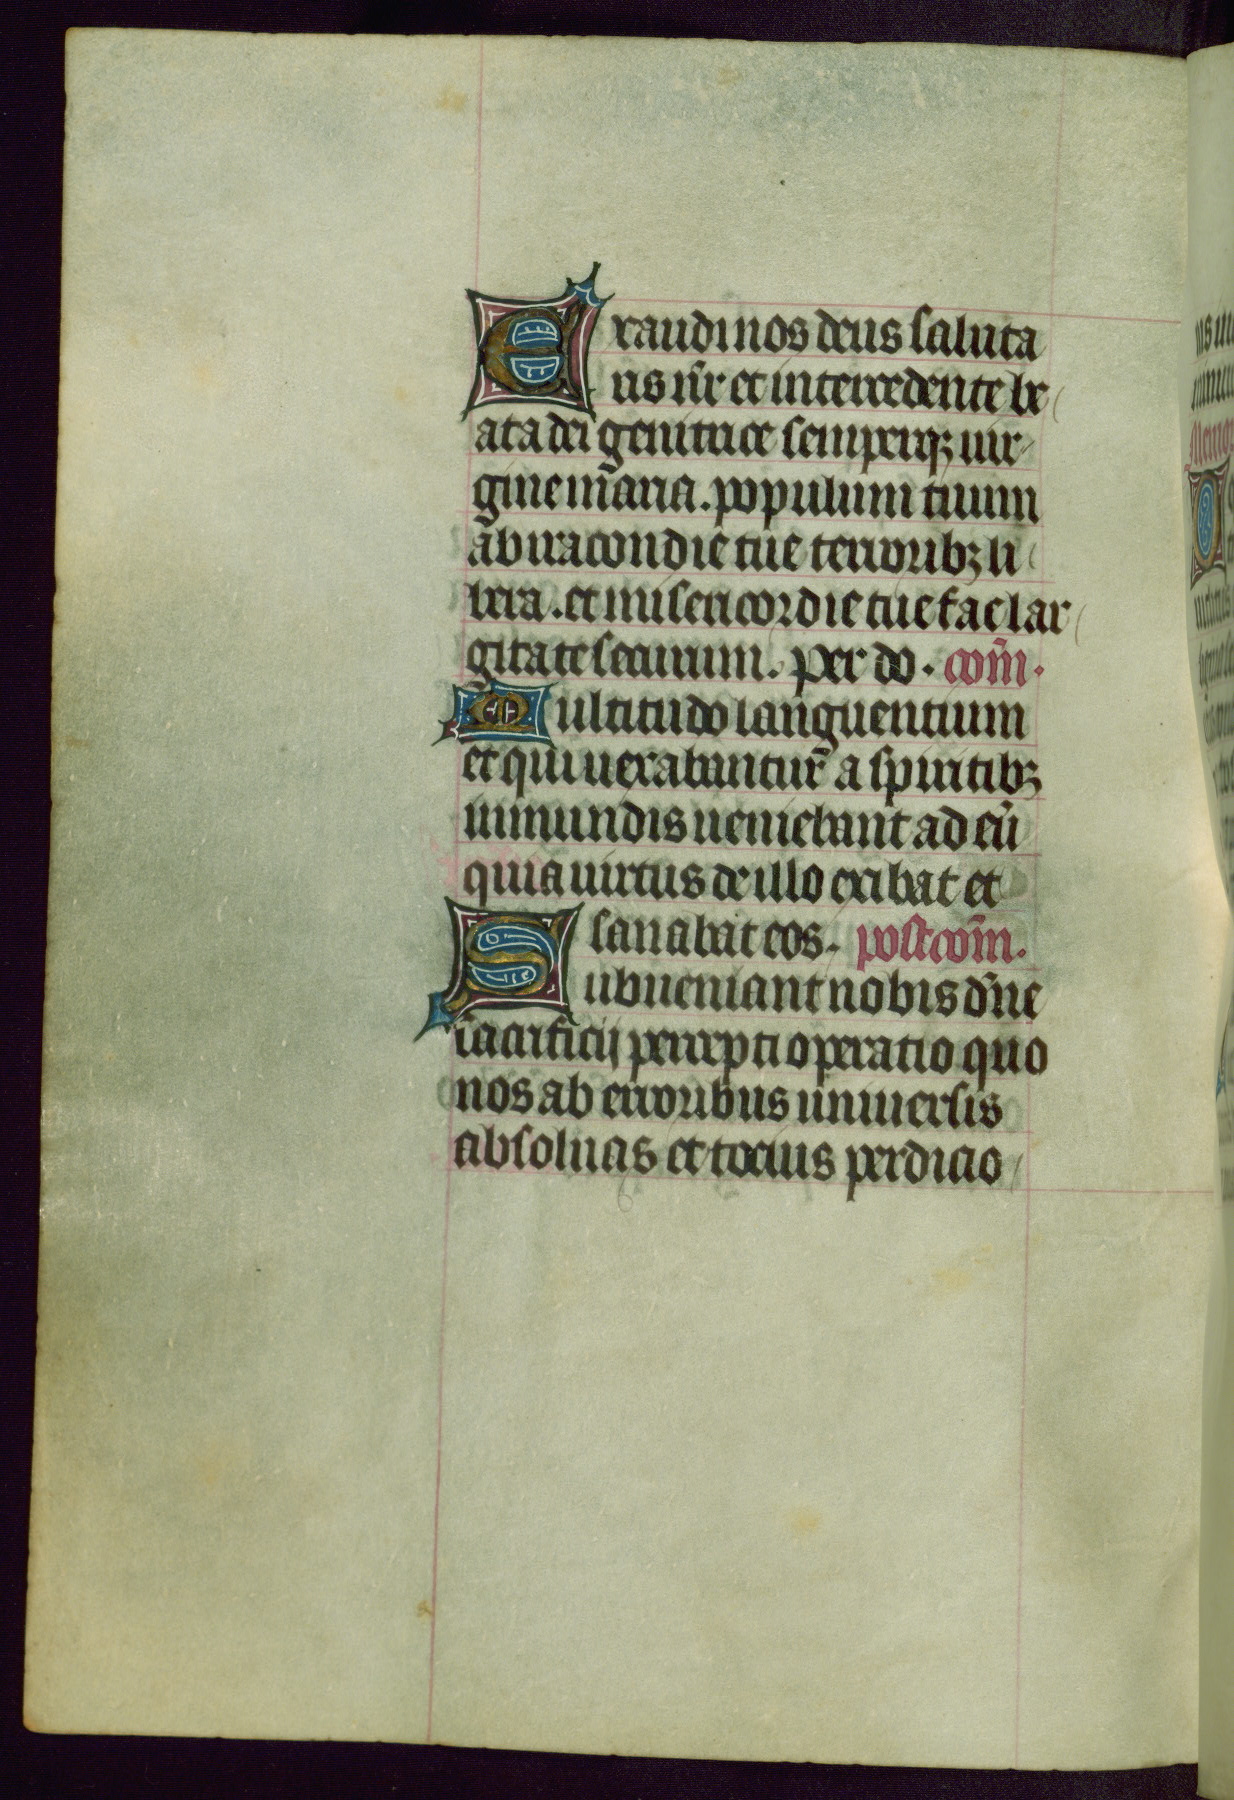 Exaudi nos deus saluta
ris nr̃ et intercedente be
ata dei genitrice semperqꝫ uir
gine maria. populum tuum
ab iracondie tue terroribꝫ li
bera. et misericordie tue fac lar
gitate securum. per do. com̃.
Multitudo languentium
et qui uexabantur̃ a spiritibꝫ
inmundis ueniebant ad eũ
quia uirtus de illo exibat et
sanabat eos. postcom̃.
Subueniant nobis dñe
sacrificij percepti operatio quo
nos ab erroribus uniuersis
absoluas et tocius perdicio